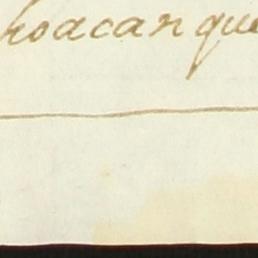 hoacan que